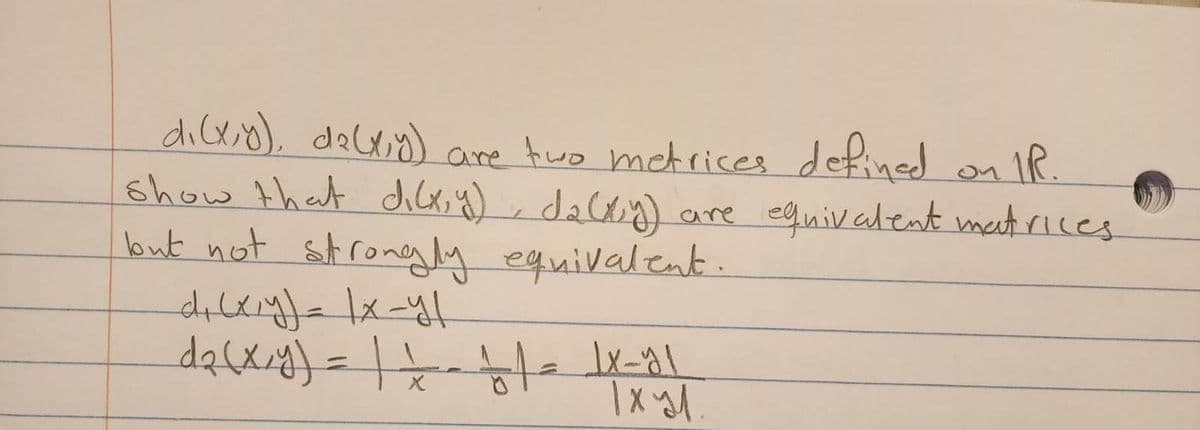 d₁(x,y), d₂(x,y) are two metrices defined on IR.
show that d₁(x,y), d₂(x,y) are equivalent matrices
but not strongly equivalent.
d₁(x,y) = |x-y|
d₂(x,y) = | 1/x - 1/y | = |x-y| / |xy|.